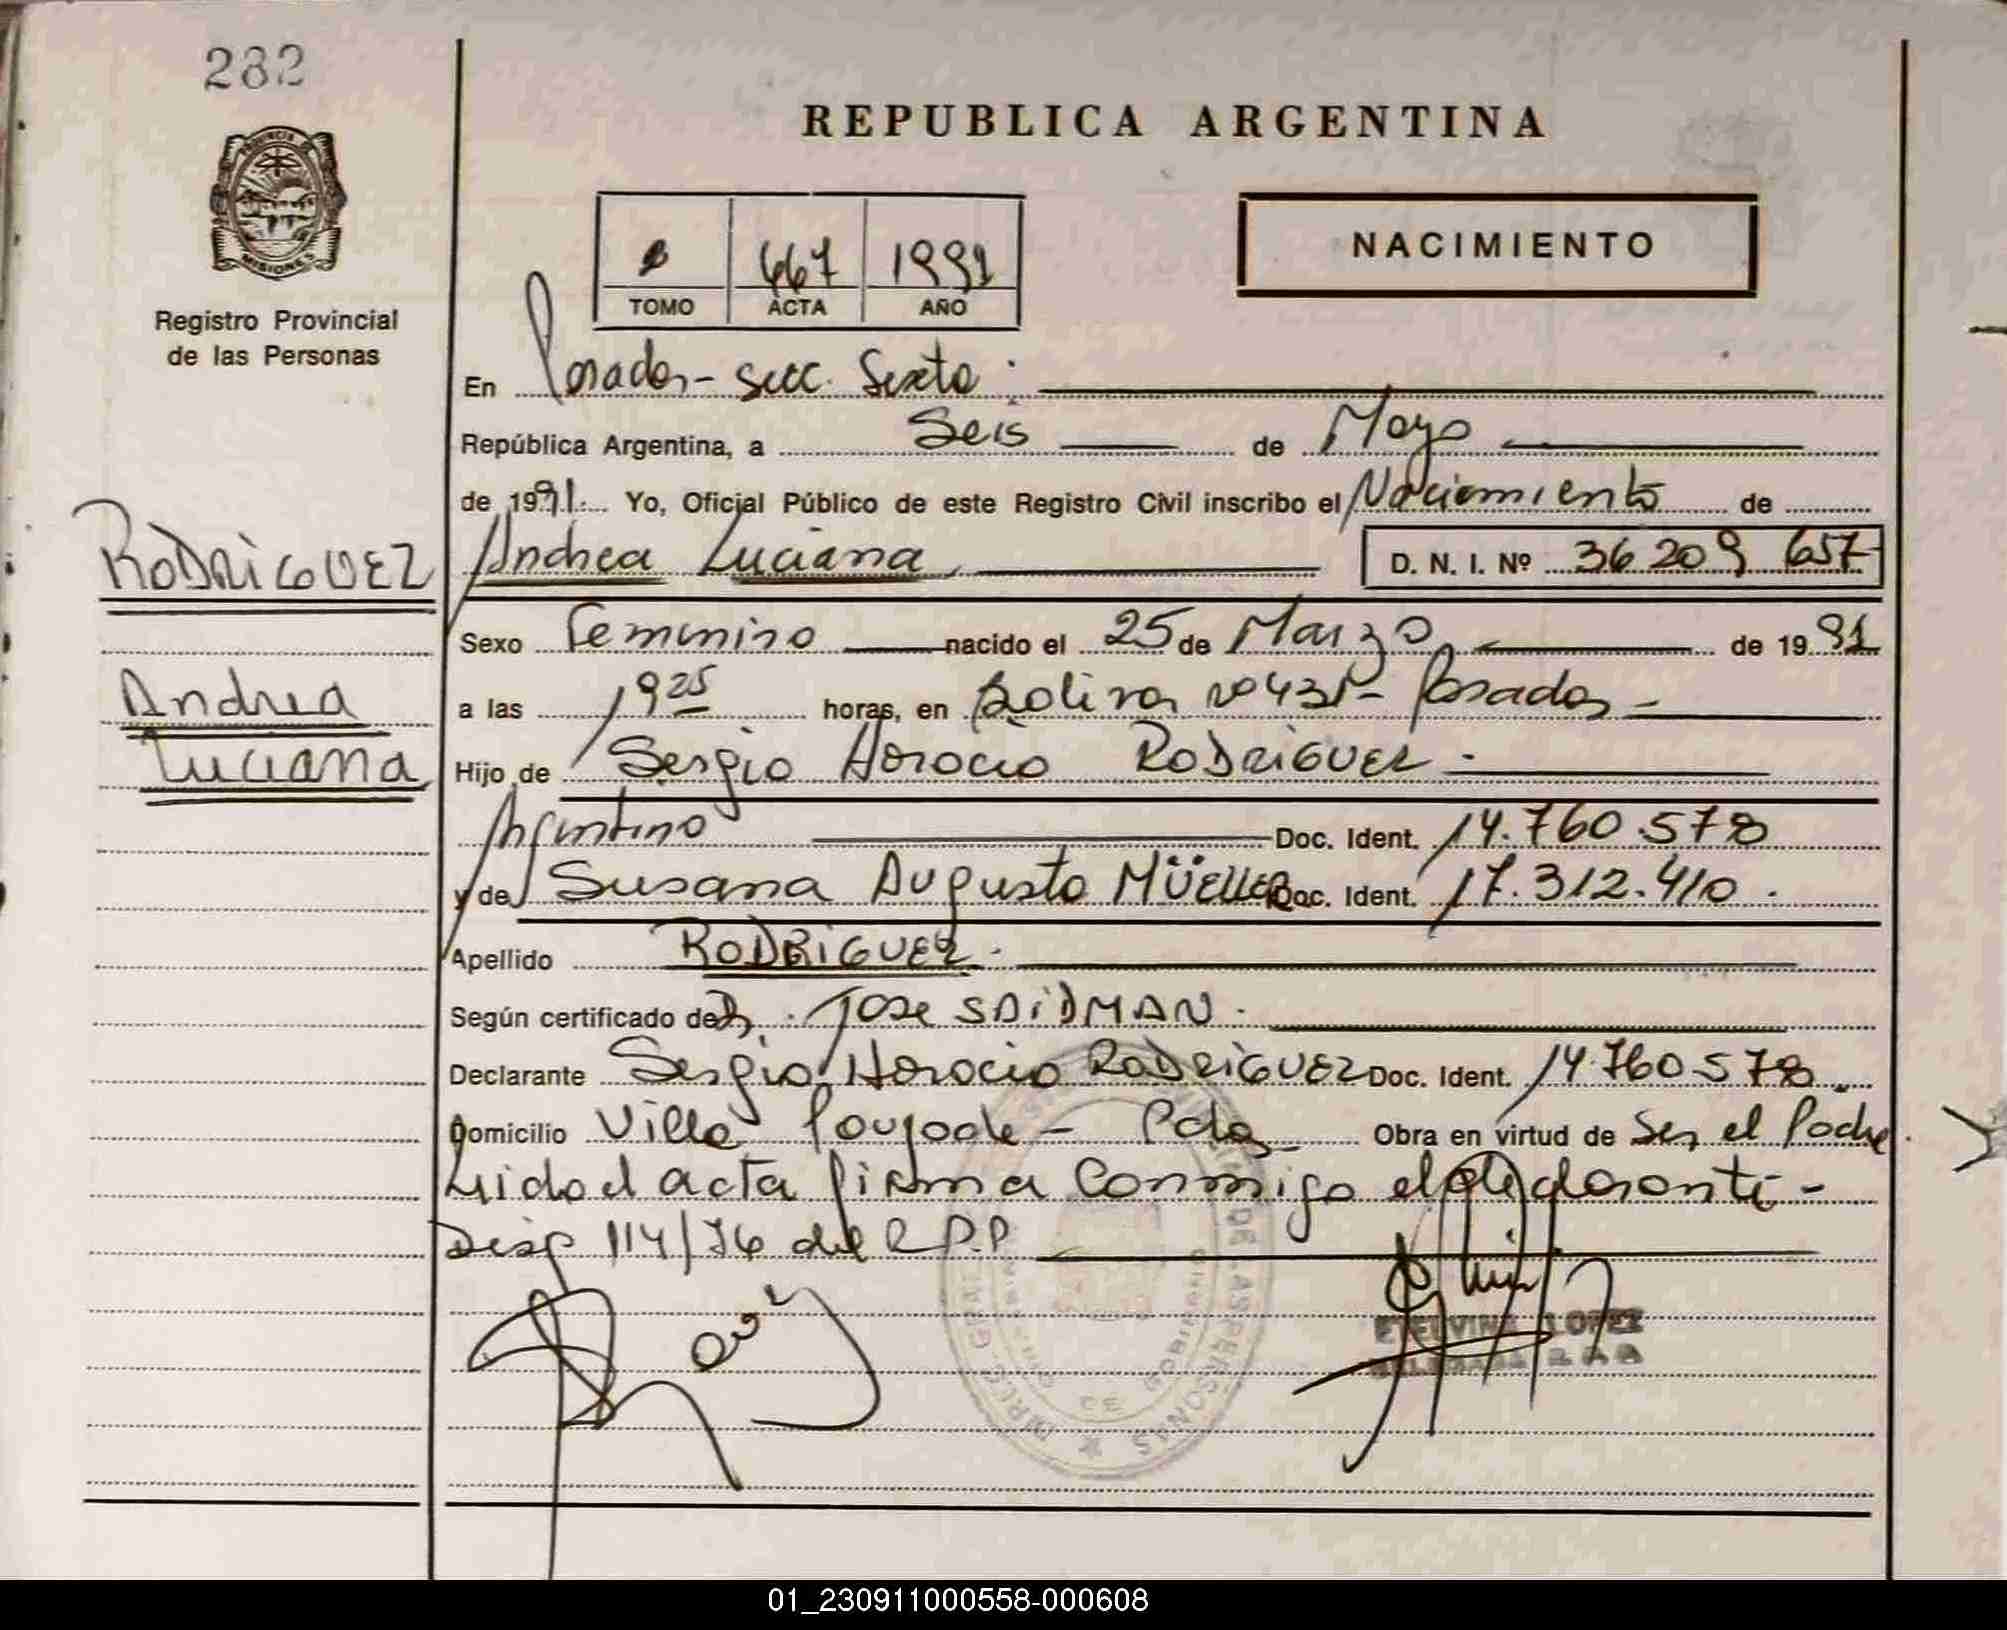 282
REPUBLICA ARGENTINA
PROVINCIA DE
MISIONES
667 1991
TOMO ACTA AÑO
NACIMIENTO
Registro Provincial
de las Personas
En Posadas - Secc. Sexta.
República Argentina, a Seis de Mayo
de 1991. Yo, Oficial Público de este Registro Civil inscribo el Nacimiento de
RODRIGUEZ
Andrea Luciana D. N. I. Nº 36 209 657
Sexo Femenino nacido el 25 de Marzo de 1991
Andrea
a las 19 25 horas, en Bolivar nº 435 - Posadas -
Luciana
Hijo de Sergio Horacio RODRIGUEZ -
Argentino Doc. Ident. 14.760.578
y de Susana Augusta MÜELLER Doc. Ident. 17.312.410.
Apellido RODRIGUEZ -
Según certificado de Dr. Jose SAIDMAN -
Declarante Sergio Horacio RODRIGUEZ Doc. Ident. 14.760.578
Domicilio Villa Poujade - Pdas Obra en virtud de Ser el Padre
Leida el acta firma conmigo el declarante -
Disp 114/76 del R.P.P
ETELVINA LOPEZ
01_230911000558-000608